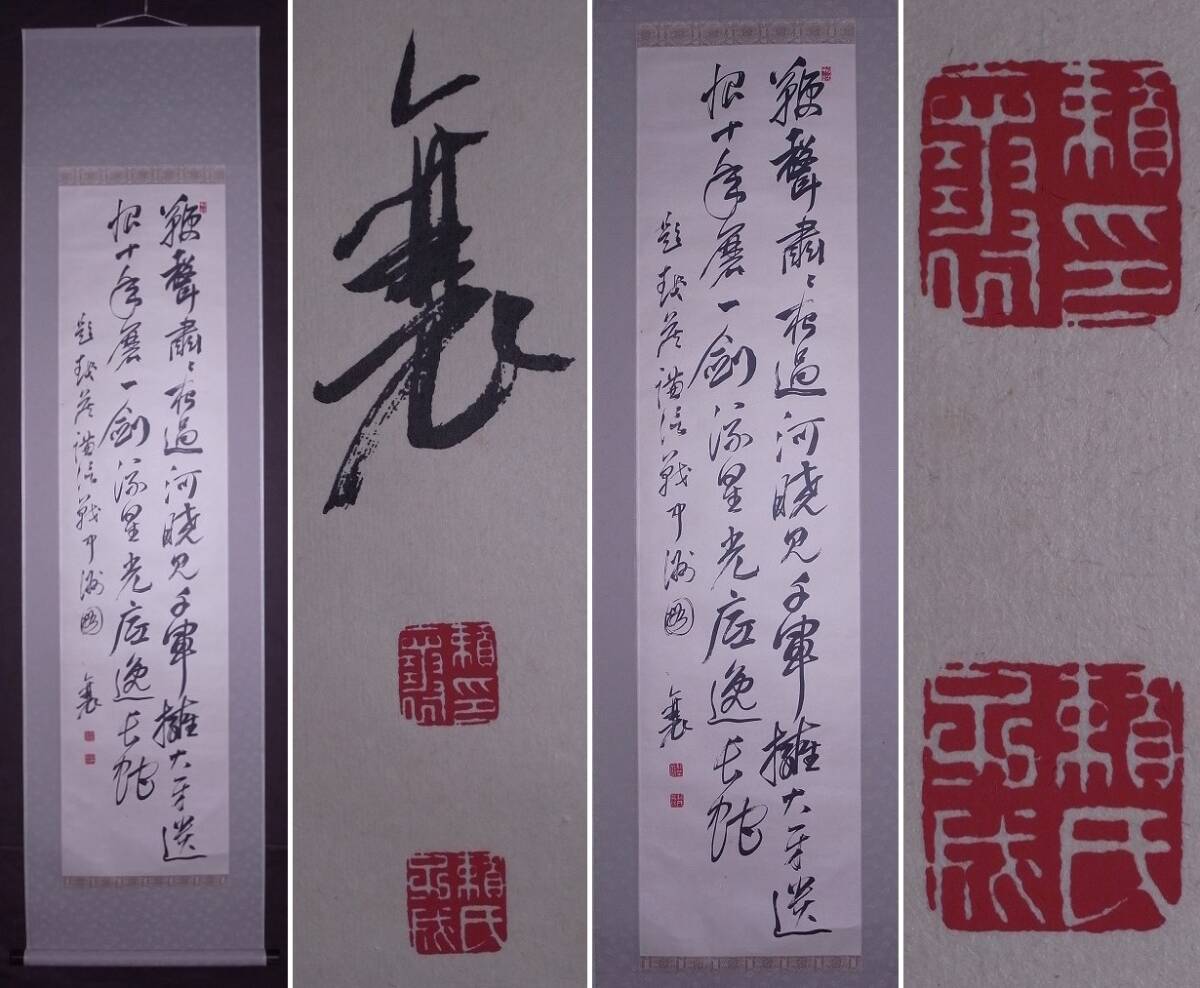 鞭聲肅々夜過河曉見千軍擁大牙遺
恨十年磨一劍流星光底逸長蛇
題越謙信戰中洲圖 襄
襄
賴印襄
賴氏子成
鞭聲肅々夜過河曉見千軍擁大牙遺
恨十年磨一劍流星光底逸長蛇
題越謙信戰中洲圖 襄
賴印襄
賴氏子成